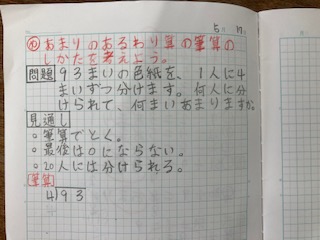 5 17
め あまりのあるわり算の筆算の
しかたを考えよう。
問題 93まいの色紙を、1人に4
まいずつ分けます。何人に分
けられて、何まいあまりますか。
見通し
○筆算でとく。
○最後は0にならない。
○20人には分けられる。
筆算
4)93